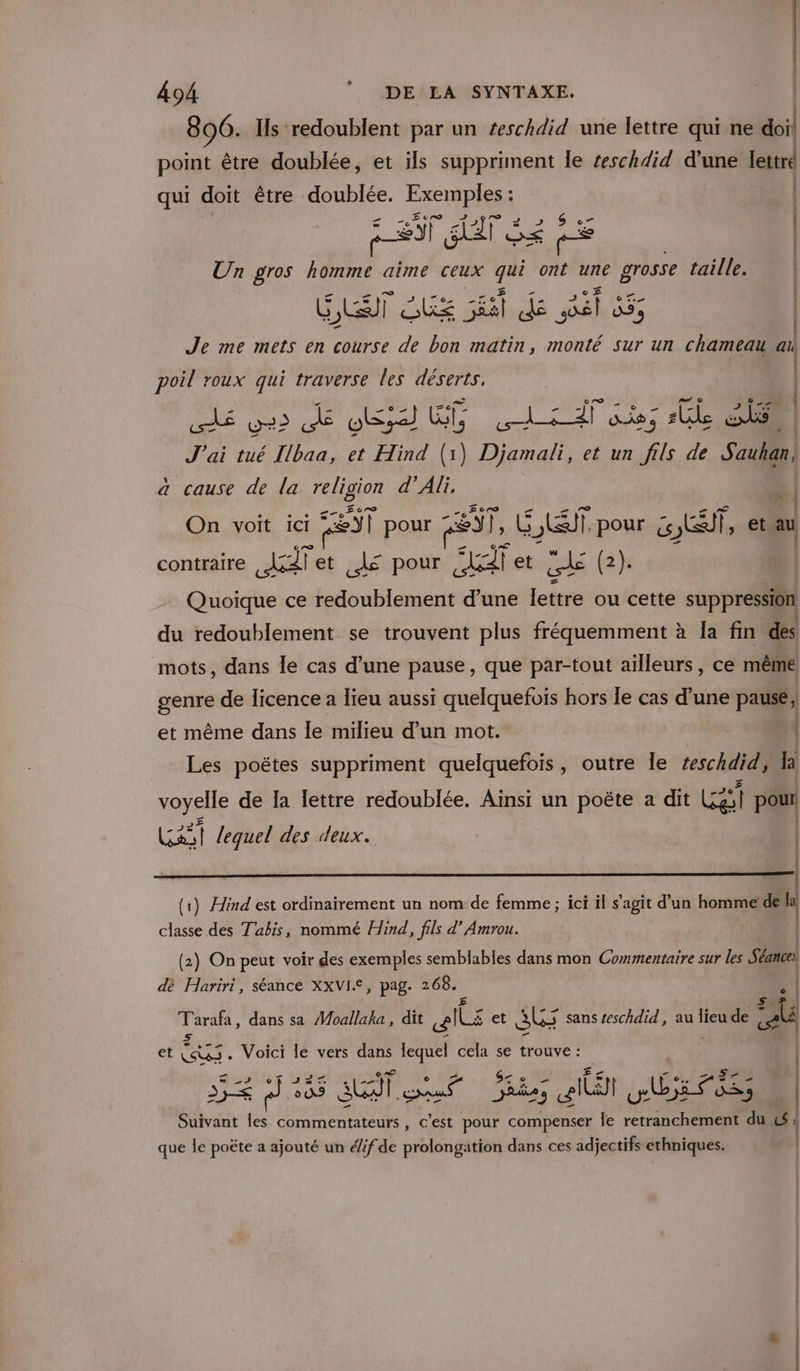 494 DE LA SYNTAXE.
896. Ils redoublent par un teschdid une lettre qui ne doit
point être doublée, et ils suppriment le teschdid d'une lettre
qui doit être doublée. Exemples :
ضَخْمٌ يُحِبُّ ٱلْخُلُقَ ٱلْأَضْخَمَّ
Un gros homme aime ceux qui ont une grosse taille.
Je me mets en course de bon matin, monté sur un chameau au
poil roux qui traverse les déserts.
قتلت علباء وهند الجملى وابنا لصوحان على دين على
J'ai tué Ilbaa, et Hind (1) Djamali, et un fils de Sauhan,
à cause de la religion d'Ali.
On voit ici الأضخمّ pour الأضخم, pour et au
contraire الجملى et على pour الجملىّ et علىّ (2).
Quoique ce redoublement d'une lettre ou cette suppression
du redoublement se trouvent plus fréquemment à la fin des
mots, dans le cas d'une pause, que par-tout ailleurs, ce même
genre de licence a lieu aussi quelquefois hors le cas d'une pause,
et même dans le milieu d'un mot.
Les poëtes suppriment quelquefois, outre le teschdid, la
voyelle de la lettre redoublée. Ainsi un poëte a dit أيهما pour
أيّهما lequel des deux.
(1) Hind est ordinairement un nom de femme; ici il s'agit d'un homme de la
classe des Tabis, nommé Hind, fils d'Amrou.
(2) On peut voir des exemples semblables dans mon Commentaire sur les Séances
de Hariri, séance XXVI.e, pag. 268.
Tarafa, dans sa Moallaka, dit شآم et يمان sans teschdid, au lieu de
et . Voici le vers dans lequel cela se trouve :
وخد كقرطاس الشآمى ومشفر كسبت اليمانى قده لم يجرد
Suivant les commentateurs, c'est pour compenser le retranchement du ى
que le poëte a ajouté un élif de prolongation dans ces adjectifs ethniques.